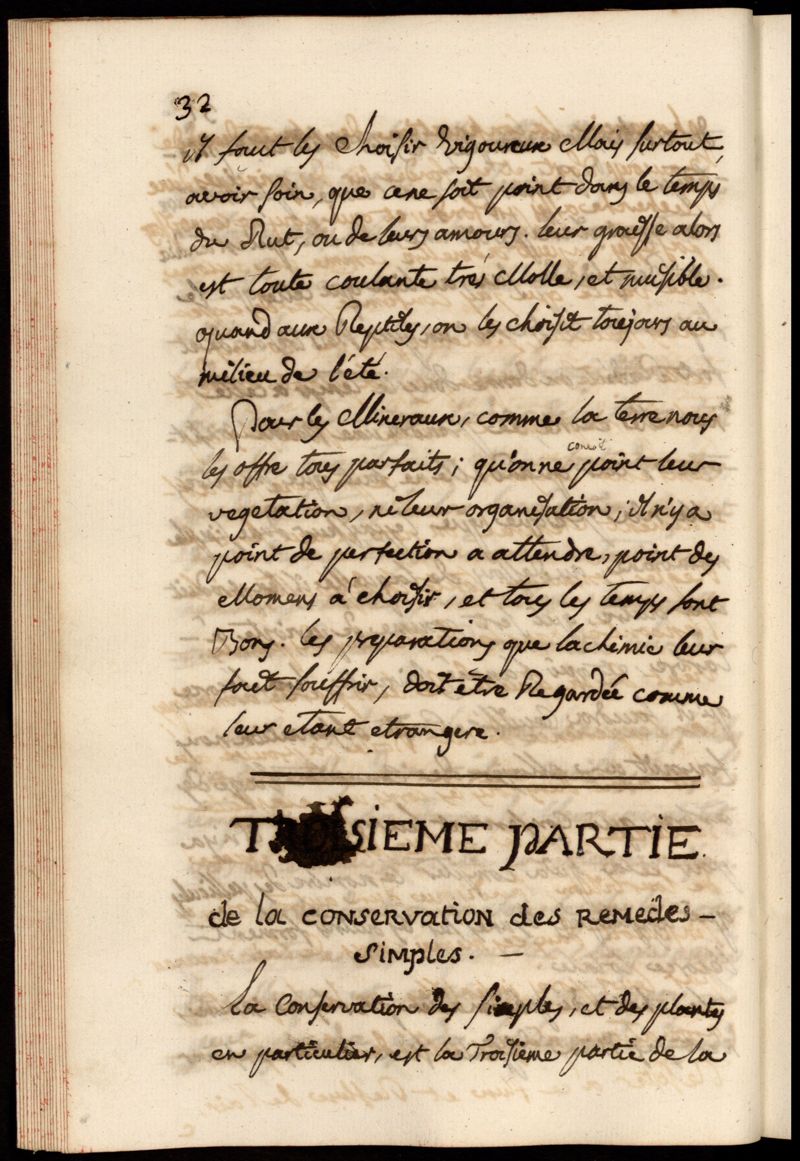 32
il faut les choisir vigoureux Mais surtout,
avoir soin, que ce ne soit point dans le temps
du Rut, ou de leurs amours. leur graisse alors
est toute coulante trés Molle, et nuisible.
quand aux Reptiles, on les choisit toujours au
milieu de l'été.
Pour les Mineraux, comme la terre nous
les offre tous parfaits; qu'on ne conoit point leur
vegetation, ni leur organisation; il n'y a
point de perfection a attendre, point des
Momens á choisir, et tous les temps sont
Bons. les preparations que la chimie leur
fait souffrir, doit être Regardée comme
leur etant etrangere.
TROISIEME PARTIE.
de la CONSERVATION des REMEDES -
SIMPLES. -
La Conservation des Simples, et des plantes
en particulier, est la Troisieme partie de la